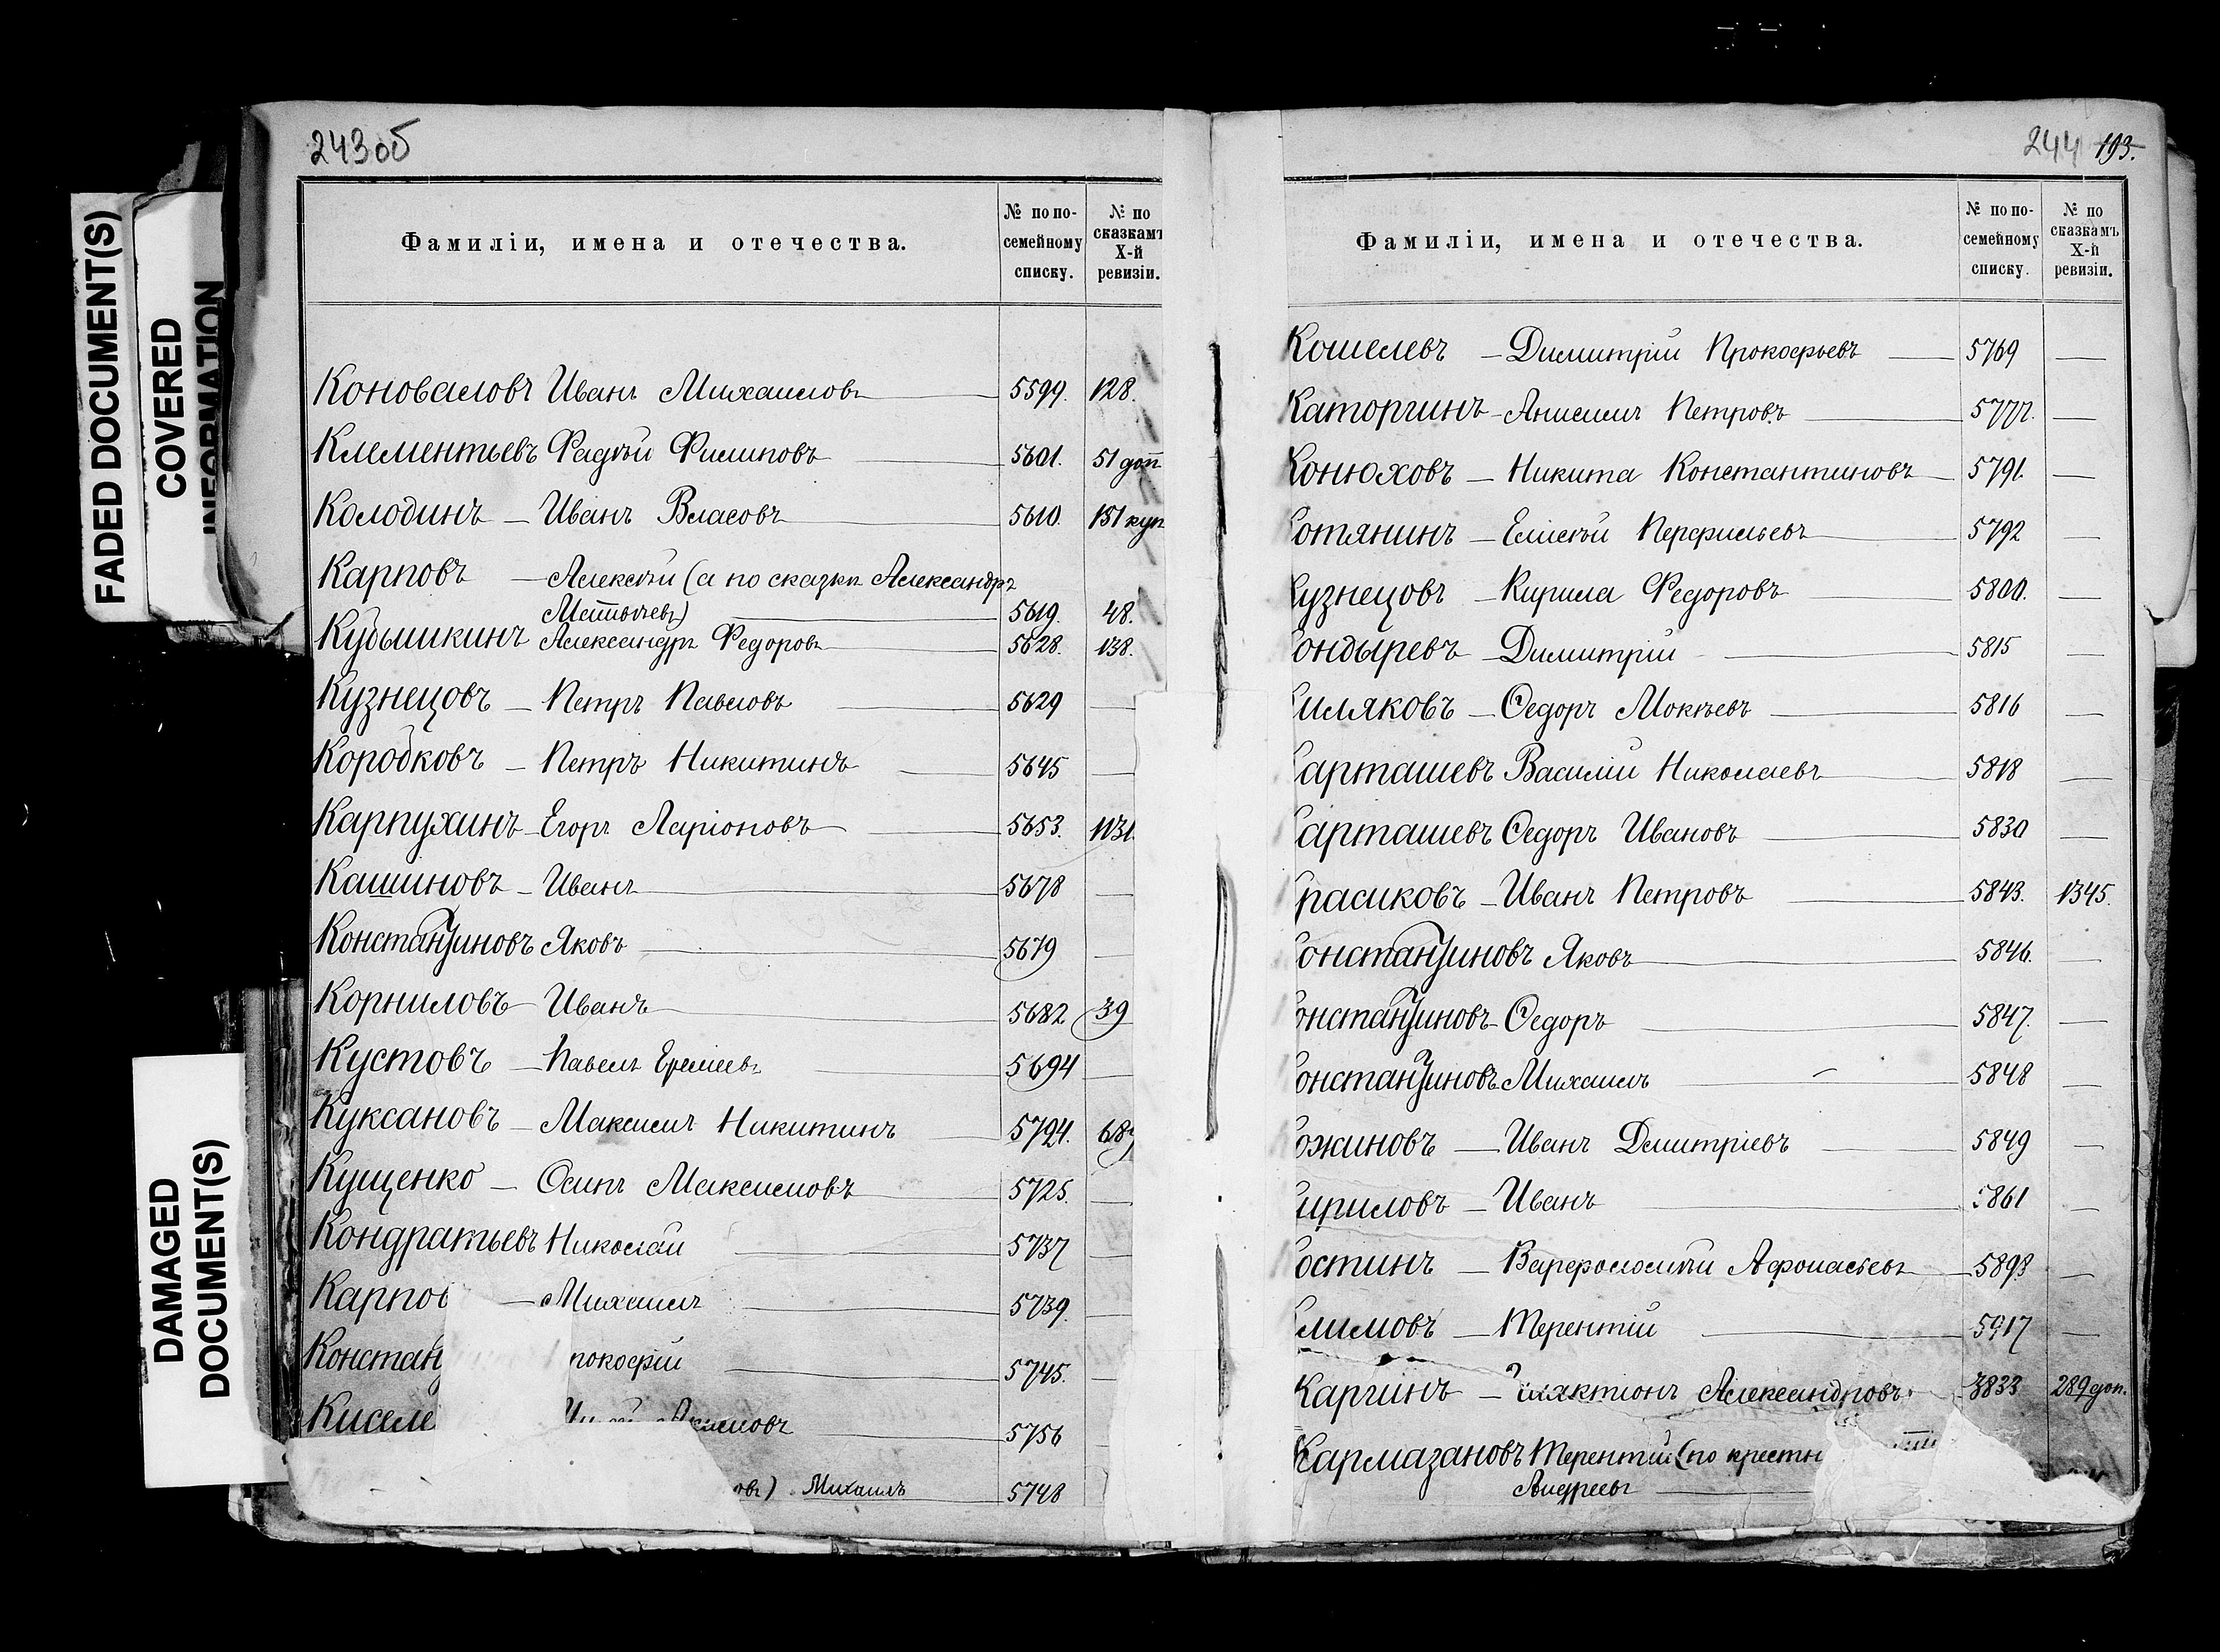 243об
Фамиліи, имена и отечества.
№ по по-
семейному
списку.
№ по
сказкамъ
X-й
ревизіи.
Коноваловъ Иванъ Михаиловъ 5599. 128.
Клементьевъ Фадѣй Филиповъ 5601. 51 доп
Колодинъ – Иванъ Власовъ 5610. 151 куп
Карповъ – Алексѣй (а по сказкѣ Александръ
Матвѣевъ) 5619. 48.
Кубышкинъ Александръ Федоровъ 5628. 138.
Кузнецовъ – Петръ Павловъ 5629 —
Коробковъ – Петръ Никитинъ 5645 —
Карпухинъ – Егоръ Ларіоновъ 5653. 1131.
Кашиновъ – Иванъ 5678 —
Константиновъ Яковъ 5679 —
Корниловъ – Иванъ 5682 39
Кустовъ – Павелъ Еремеевъ 5694 —
Куксановъ – Максимъ Никитинъ 5724. 687
Кущенко – Осипъ Максимовъ 5725. —
Кондратьевъ Николай 5737 —
Карпов – Михаилъ 5739. —
Констан рокофій 5745. —
Киселе Акимовъ 5756
овъ) Михаилъ 5748
244 193.
Фамиліи, имена и отечества.
№ по по-
семейному
списку.
№ по
сказкамъ
X-й
ревизіи.
Кошелевъ – Димитрій Прокофьевъ 5769 —
Каторгинъ – Анисимъ Петровъ 5777. —
Конюховъ – Никита Константиновъ 5791. —
отянинъ – Елисѣй Перфильевъ 5792 —
Кузнецовъ – Кирила Федоровъ 5800. —
ондыревъ – Димитрій 5815 —
иляковъ – Федоръ Мокѣевъ 5816 —
арташевъ Василій Николаевъ 5818 —
арташевъ Федоръ Ивановъ 5830 —
расиковъ – Иванъ Петровъ 5843. 1345.
онстантиновъ Яковъ 5846. —
онстантиновъ – Федоръ 5847. —
онстантиновъ Михаилъ 5848 —
ожиновъ – Иванъ Дмитріевъ 5849 —
ириловъ – Иванъ 5861 —
остинъ – Варфоломѣй Афонасьевъ 5893 —
лимовъ – Терентій 5917 —
Каргинъ – Галактіонъ Александровъ 3833 289 доп.
Кармазановъ Терентій (по крестн
Андреевъ
FADED DOCUMENT(S)
COVERED
INFORMATION
DAMAGED
DOCUMENT(S)